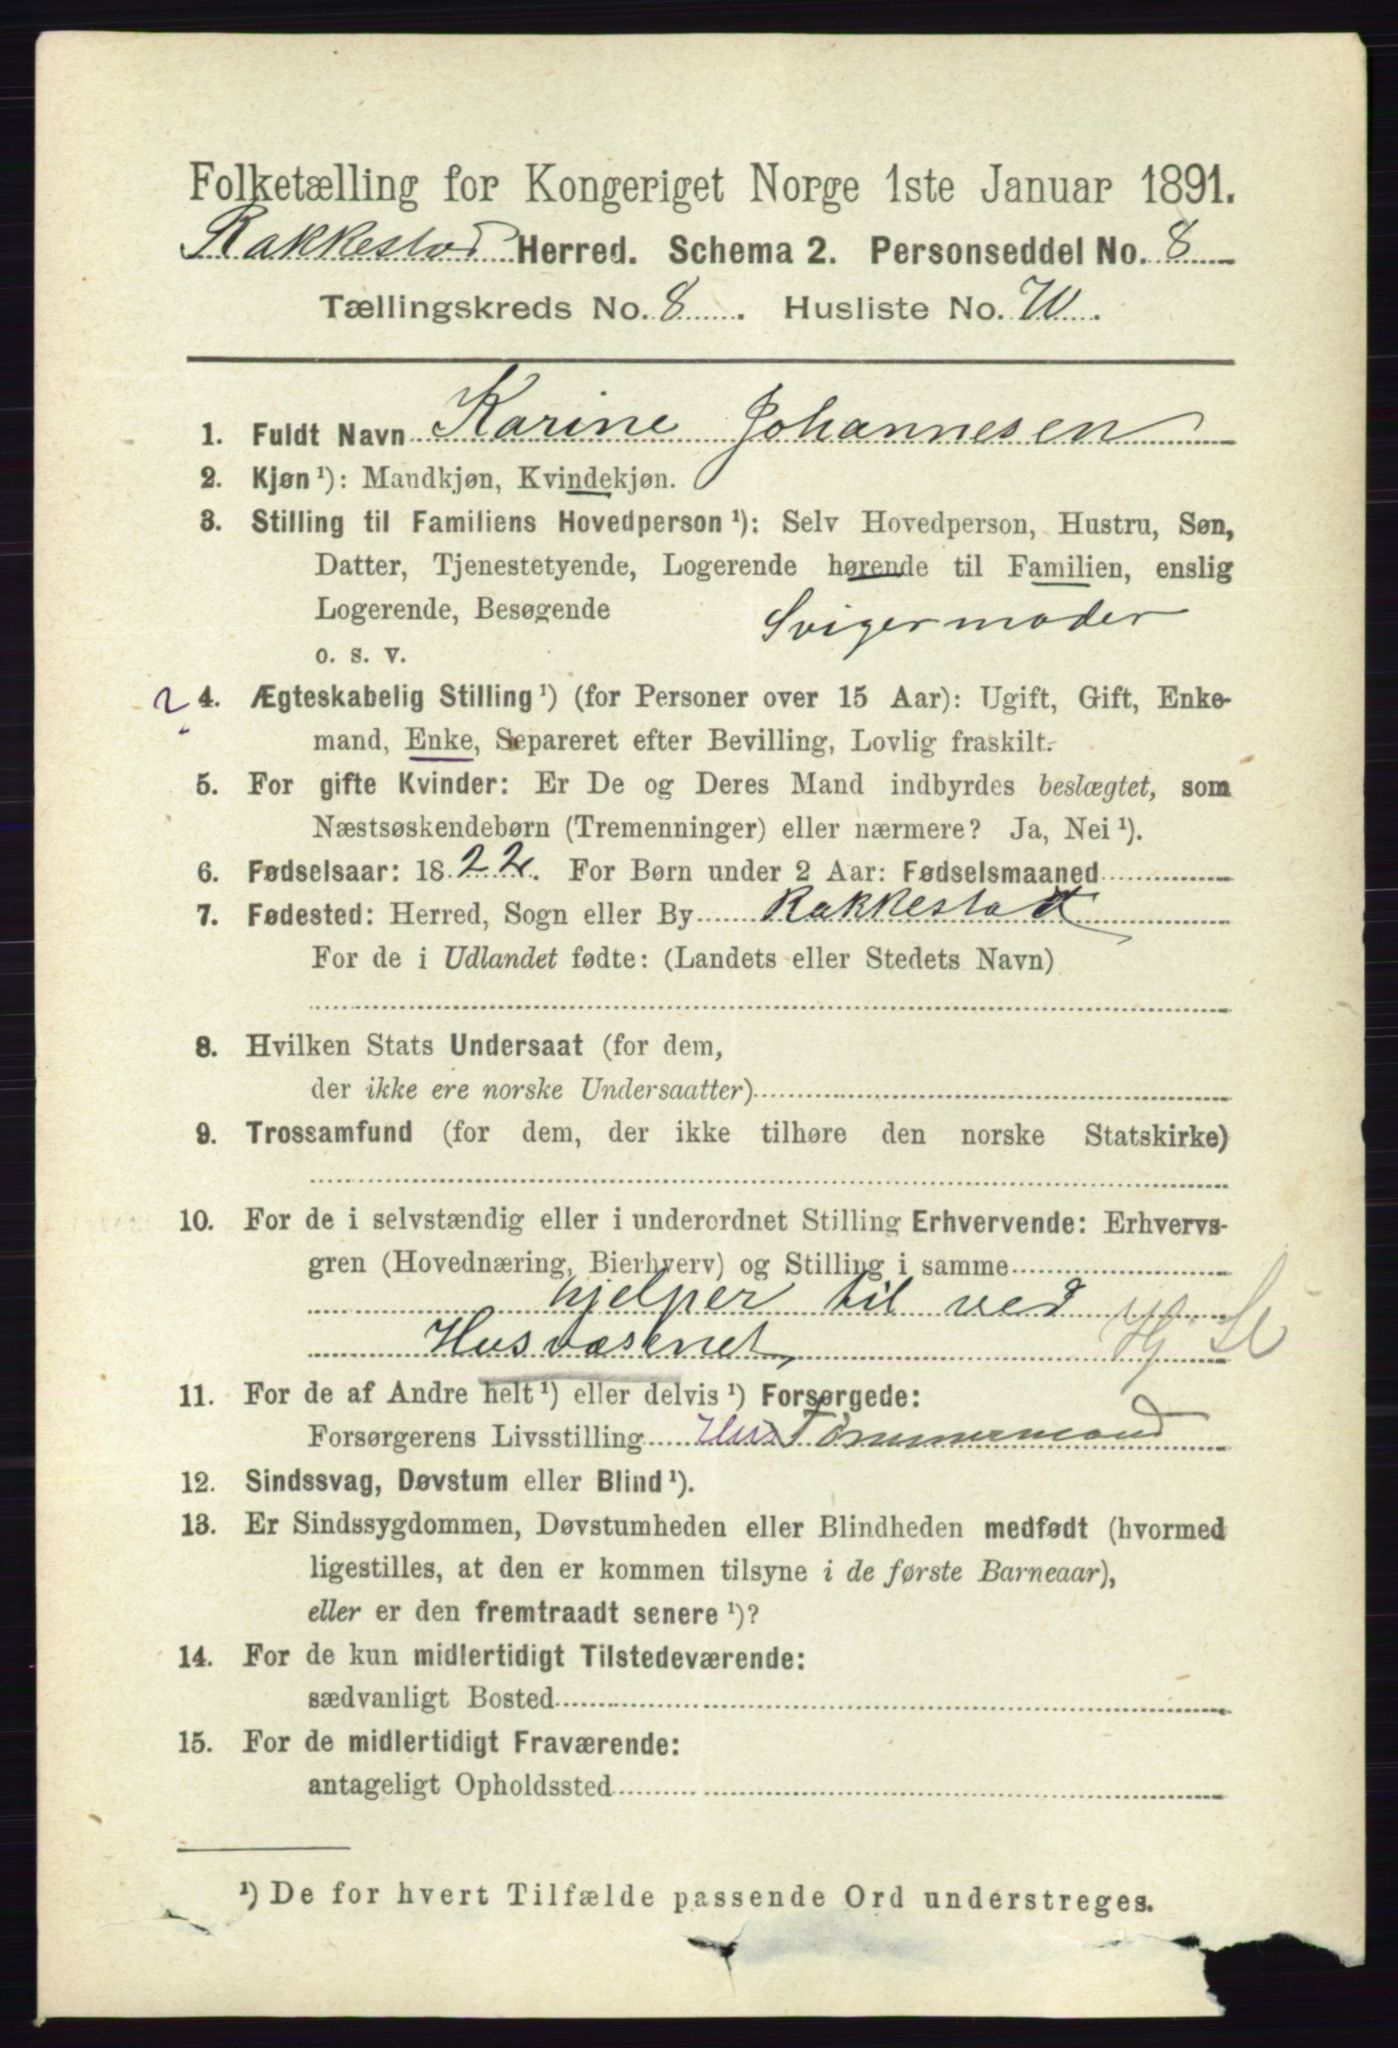 Folketælling for Kongeriget Norge 1ste Januar 1891.
Rakkestad Herred. Schema 2. Personseddel No. 8
Tællingskreds No. 8. Husliste No.
1. Fuldt Navn Karine Johannesen
2. Kjøn ¹): Mandkjøn, Kvindekjøn.
3. Stilling til Familiens Hovedperson ¹): Selv Hovedperson, Hustru, Søn,
Datter, Tjenestetyende, Logerende hørende til Familien, enslig
Logerende, Besøgende
Svigermoder
o. s. v.
2 4. Ægteskabelig Stilling ¹) (for Personer over 15 Aar): Ugift, Gift, Enke-
mand, Enke, Separeret efter Bevilling, Lovlig fraskilt.
5. For gifte Kvinder: Er De og Deres Mand indbyrdes beslægtet, som
Næstsøskendebørn (Tremenninger) eller nærmere? Ja, Nei ¹).
6. Fødselsaar: 1822. For Børn under 2 Aar: Fødselsmaaned
7. Fødested: Herred, Sogn eller By Rakkestad
For de i Udlandet fødte: (Landets eller Stedets Navn)
8. Hvilken Stats Undersaat (for dem,
der ikke ere norske Undersaatter)
9. Trossamfund (for dem, der ikke tilhøre den norske Statskirke)
10. For de i selvstændig eller i underordnet Stilling Erhvervende: Erhvervs-
gren (Hovednæring, Bierhverv) og Stilling i samme
hjelper til ved
Husvæsenet,
11. For de af Andre helt ¹) eller delvis ¹) Forsørgede:
Forsørgerens Livsstilling Hus Tømmermand
12. Sindssvag, Døvstum eller Blind ¹).
13. Er Sindssygdommen, Døvstumheden eller Blindheden medfødt (hvormed
ligestilles, at den er kommen tilsyne i de første Barneaar),
eller er den fremtraadt senere ¹)?
14. For de kun midlertidigt Tilstedeværende:
sædvanligt Bosted
15. For de midlertidigt Fraværende:
antageligt Opholdssted
¹) De for hvert Tilfælde passende Ord understreges.